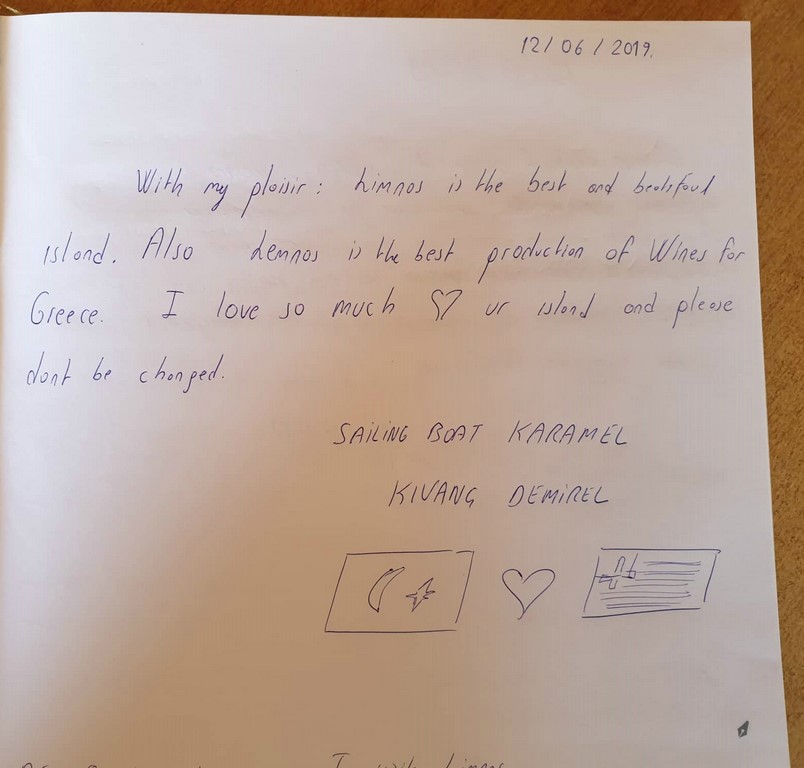 12/06/2019.
With my plaisir: Limnos is the best and beatifoul
island. Also Lemnos is the best production of Wines for
Greece. I love so much ♡ ur island and please
dont be changed.
SAILING BOAT KARAMEL
KIVANG DEMIREL